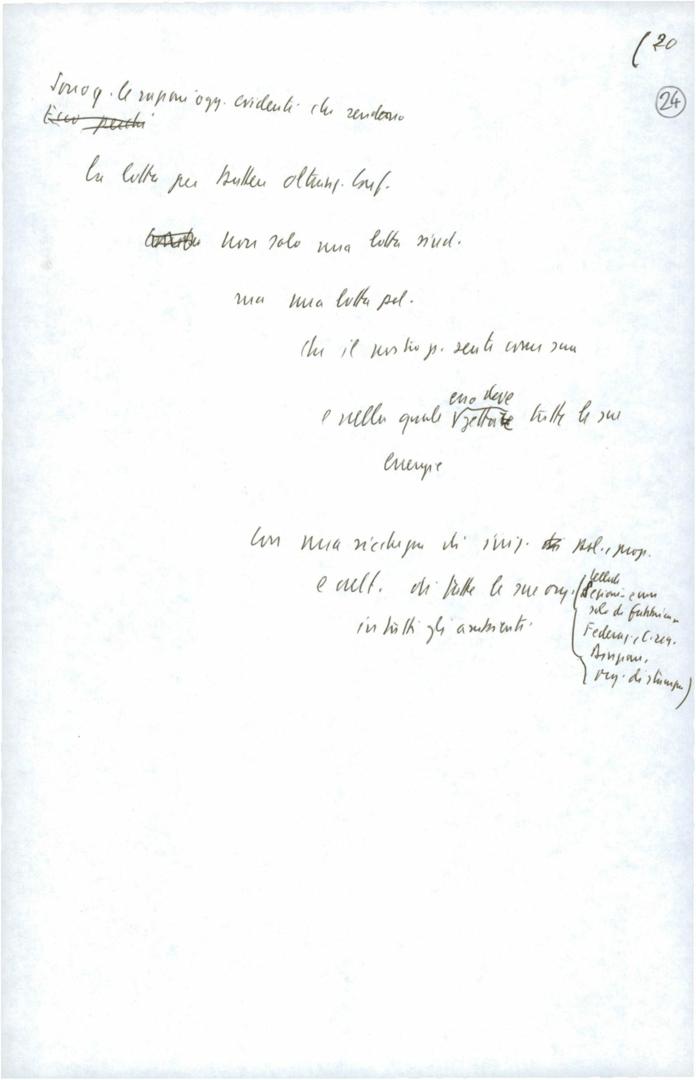 (20
24
Sono q. le ragioni ogg. evidenti che rendono
Ecco perché
la lotta per
non solo una lotta sind.
ma una lotta pol.
che il nostro p. sente come sua
esso deve
e nella quale gettare tutte le sue
energie
Con una ricchezza di iniz. pol., prop.
e cult. di tutte le sue org. (cellule
Sezioni e non
solo di fabbrica
in tutti gli ambienti.
Federaz., C. reg.
org. di stampa)